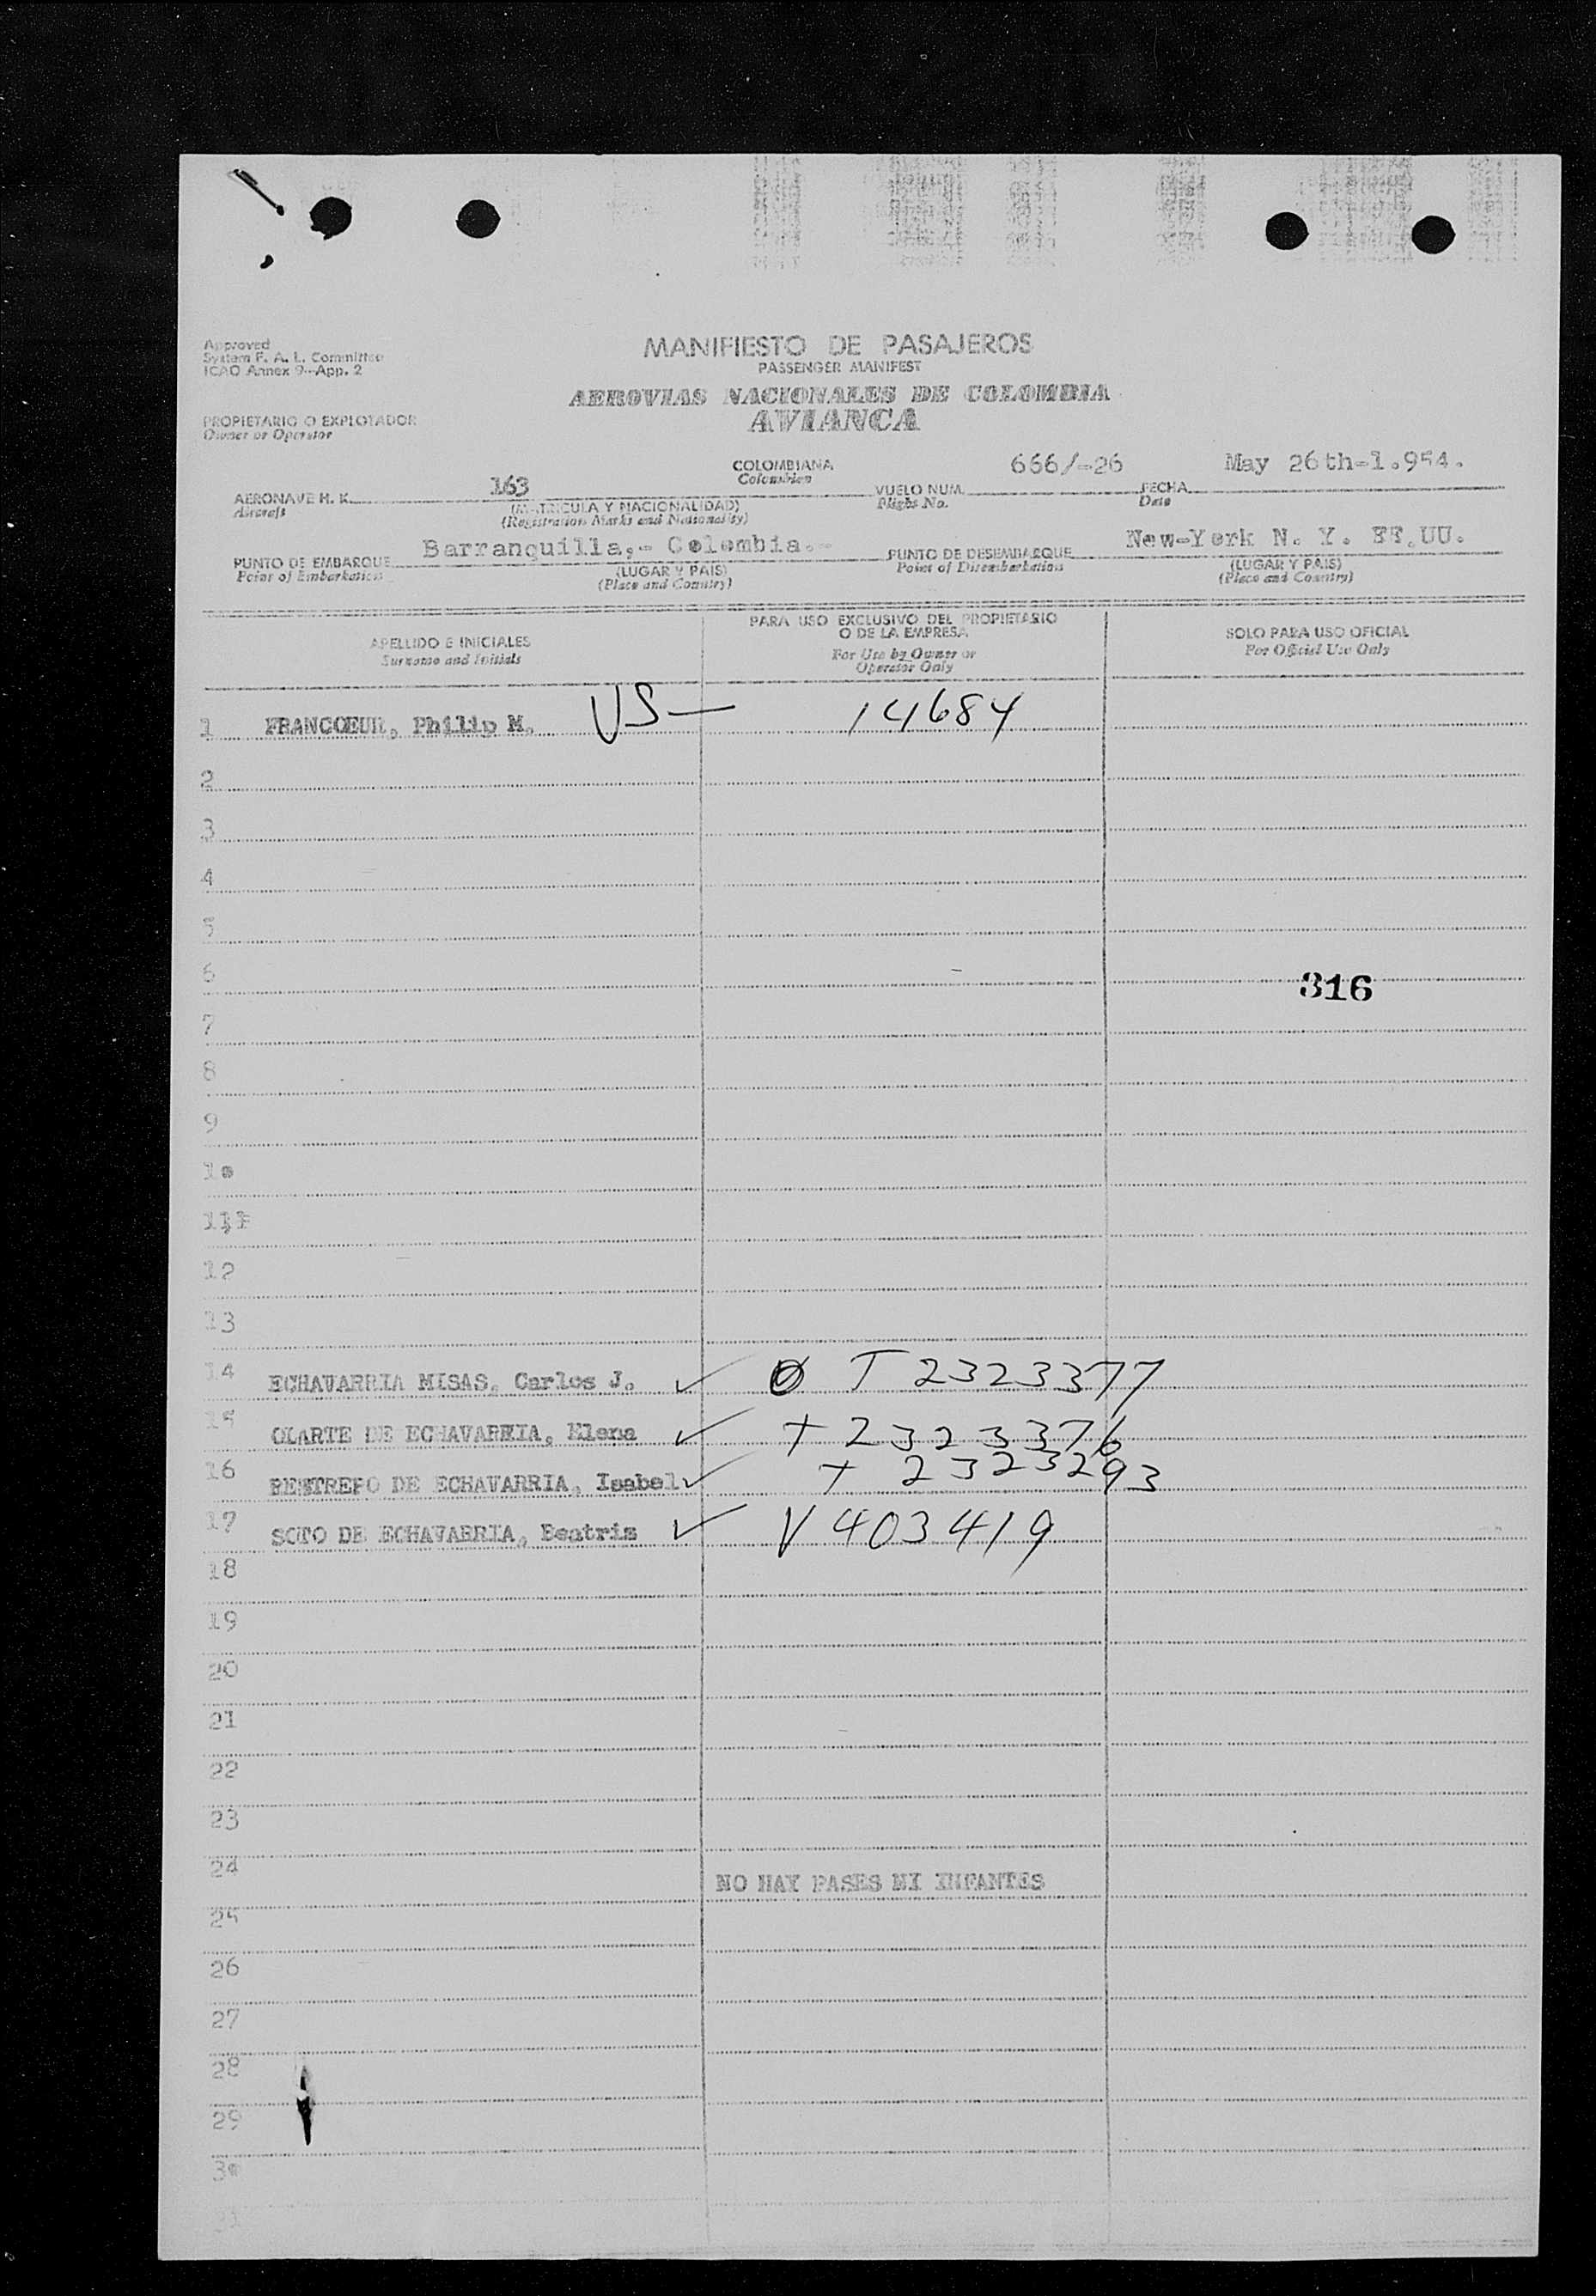 Approved
System F. A. L. Committee
ICAO Annex 9-App. 2
MANIFIESTO DE PASAJEROS
PASSENGER MANIFEST
AEROVIAS NACIONALES DE COLOMBIA
AVIANCA
PROPIETARIO O EXPLOTADOR
Owner or Operator
AERONAVE H. K. 163 COLOMBIANA VUELO NUM. 666/-26 FECHA May 26th-1.954.
Aircraft Colombian Flight No. Date
(MATRICULA Y NACIONALIDAD)
(Registration Marks and Nationality)
PUNTO DE EMBARQUE Barranquilla,- Colombia.- PUNTO DE DESEMBARQUE New-York N. Y. EE.UU.
Point of Embarkation (LUGAR Y PAIS) Point of Disembarkation (LUGAR Y PAIS)
(Place and Country) (Place and Country)
APELLIDO E INICIALES
Surname and Initials
PARA USO EXCLUSIVO DEL PROPIETARIO
O DE LA EMPRESA
For Use by Owner or
Operator Only
SOLO PARA USO OFICIAL
For Official Use Only
1 FRANCOEUR, Philip M. US— 14684
2
3
4
5
6 316
7
8
9
10
11
12
13
14 ECHAVARRIA MISAS, Carlos J. ✓ T 2323377
15 OLARTE DE ECHAVARRIA, Elena ✓ T 2323376
16 RESTREPO DE ECHAVARRIA, Isabel ✓ T 2323293
17 SOTO DE ECHAVARRIA, Beatriz ✓ V 403419
18
19
20
21
22
23
24 NO HAY PASES NI INFANTES
25
26
27
28
29
30
31